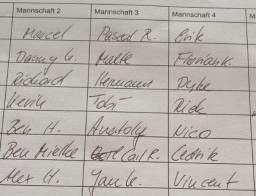 Mannschaft 2 Mannschaft 3 Mannschaft 4 M
Marcel Pascal R. Erik
Danny G. Malte Florian K.
Richard Hermann
Henrik Tobi Rick
Ben H. Anatoly Nico
Ben Mielke Carl R. Cedrik
Alex H. Jan G. Vincent